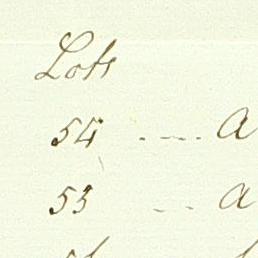 Lots
54 .... a
53 ... a